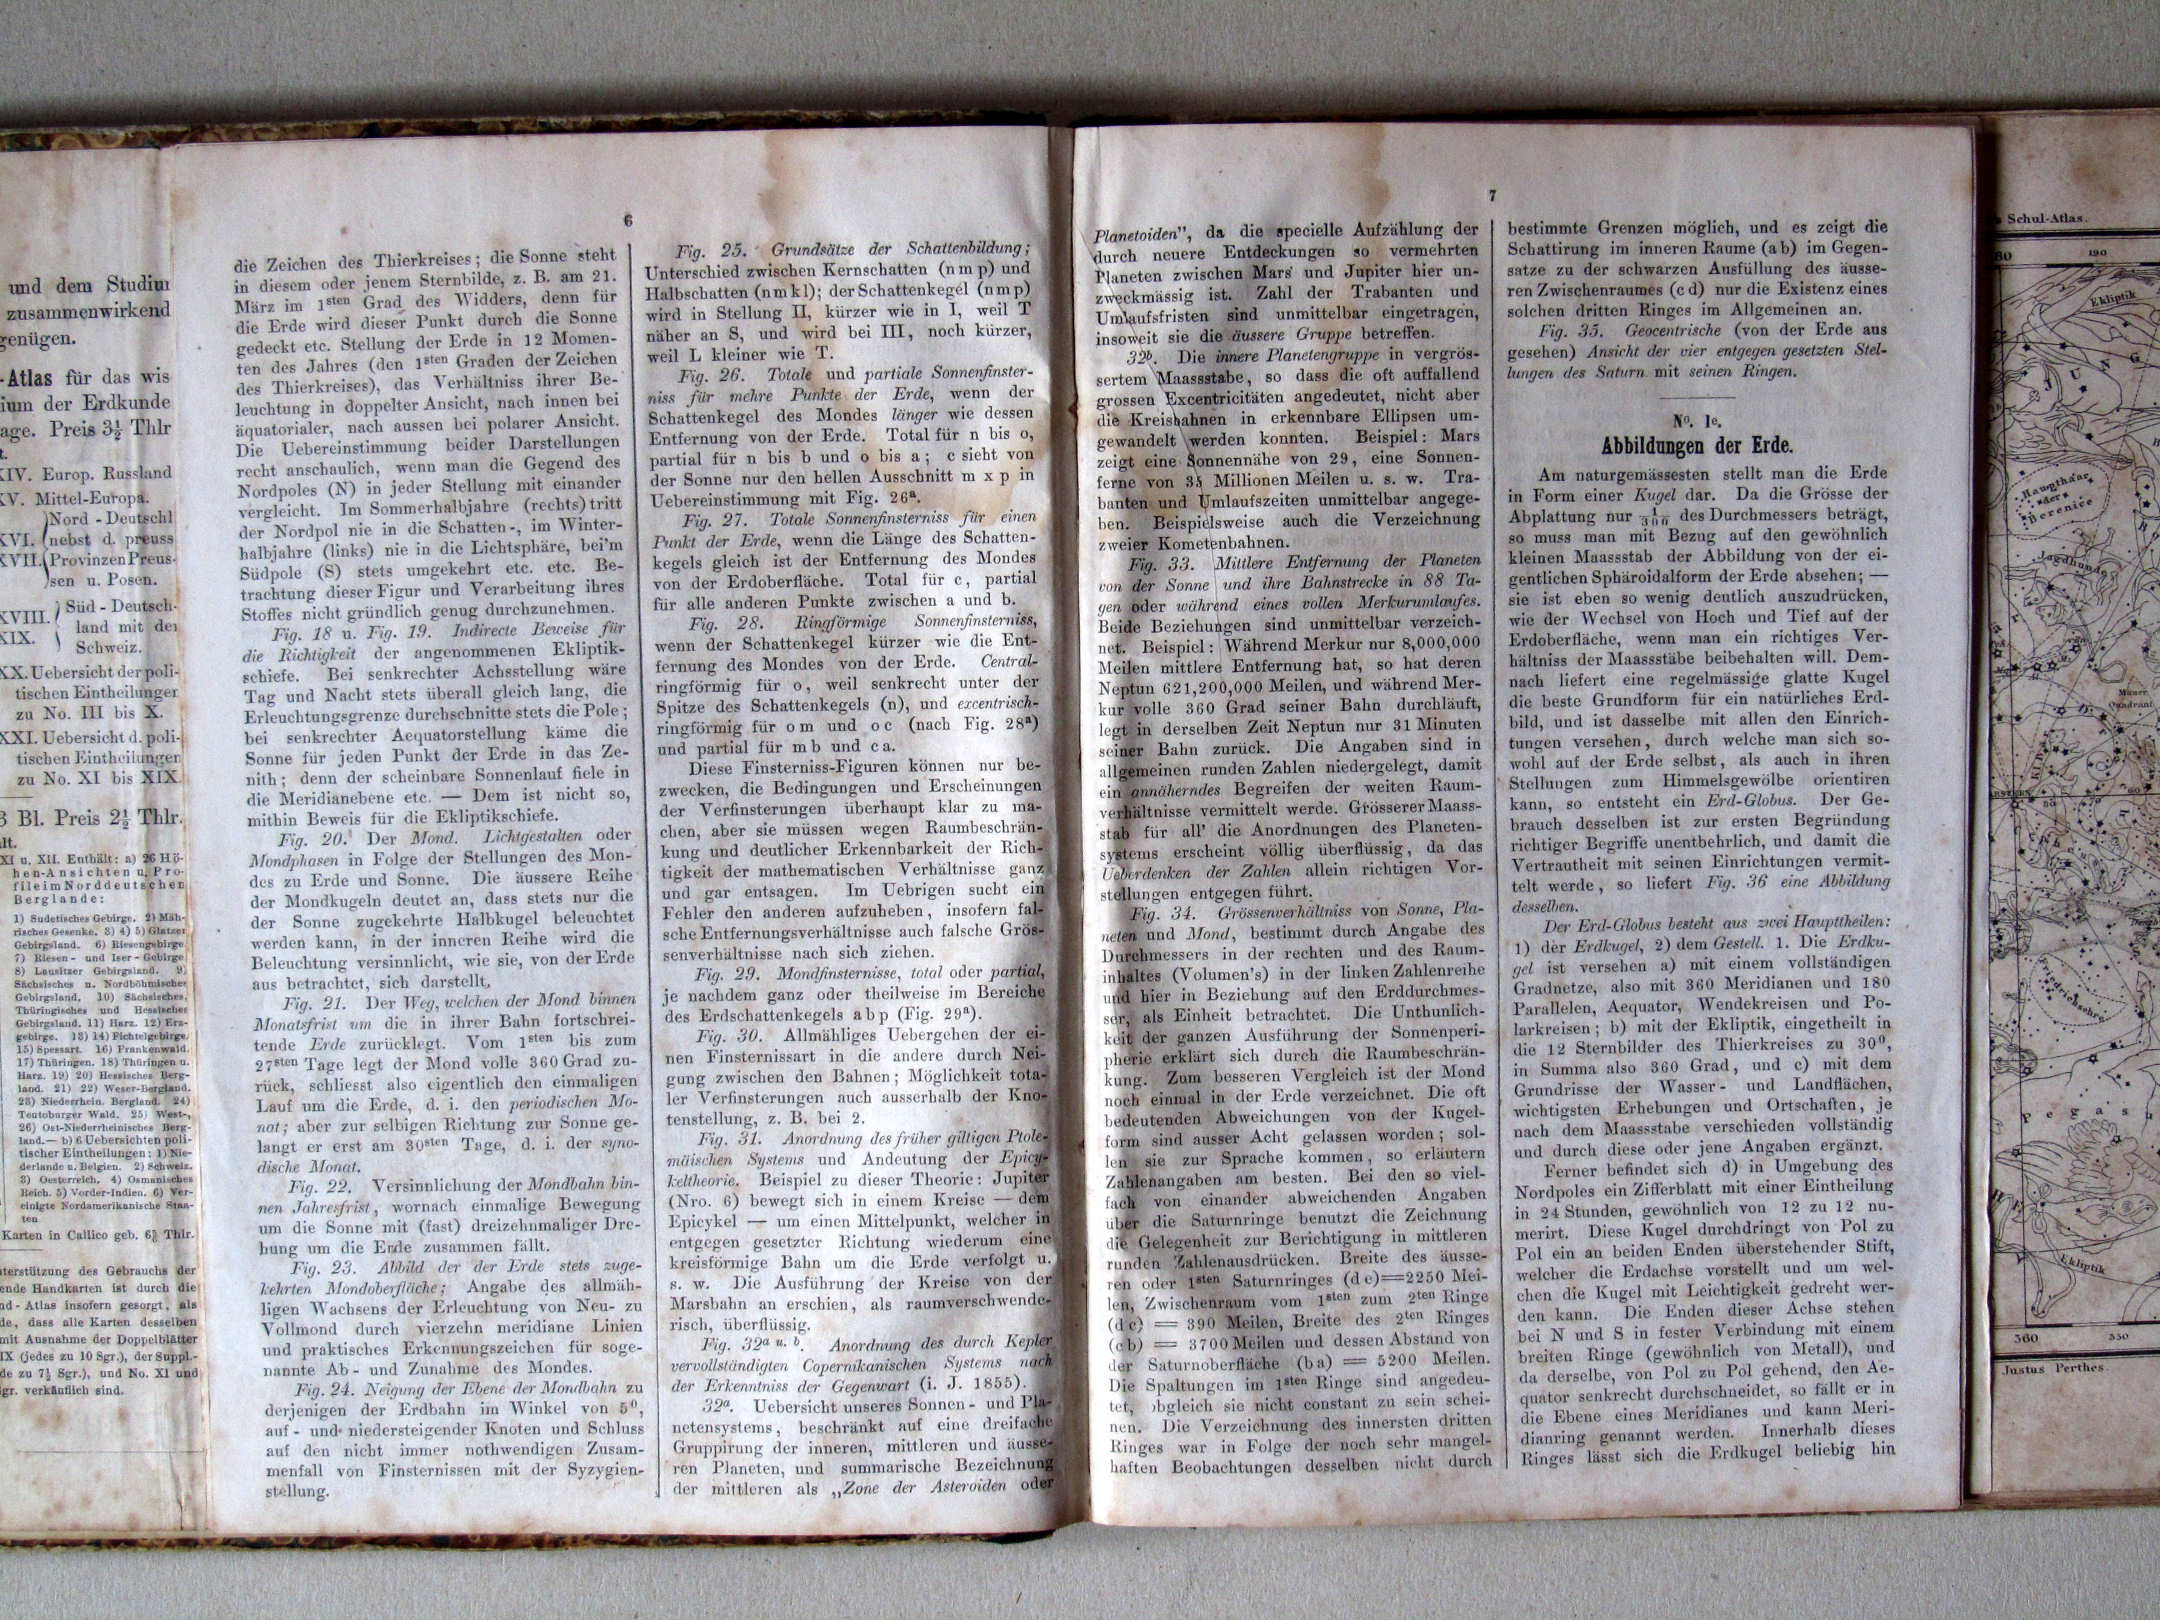 und dem Studium
zusammenwirkend
genügen.
-Atlas für das wis
ium der Erdkunde
age. Preis 3½ Thlr
XIV. Europ. Russland
XV. Mittel-Europa.
Nord-Deutschl
XVI. nebst d. preuss
XVII. Provinzen Preus-
sen u. Posen.
XVIII. Süd-Deutsch-
XIX. land mit der
Schweiz.
XX. Uebersicht der poli-
tischen Eintheilungen
zu No. III bis X.
XXI. Uebersicht d. poli-
tischen Eintheilungen
zu No. XI bis XIX.
3 Bl. Preis 2½ Thlr.
lt.
XI u. XII. Enthält: a) 26 Hö-
hen-Ansichten u. Pro-
file im Norddeutschen
Berglande:
1) Sudetisches Gebirge. 2) Mäh-
risches Gesenke. 3) 4) 5) Glatzer
Gebirgsland. 6) Riesengebirge
7) Riesen- und Iser-Gebirge
8) Lausitzer Gebirgsland. 9)
Sächsisches u. Nordböhmisches
Gebirgsland. 10) Sächsisches,
Thüringisches und Hessisches
Gebirgsland. 11) Harz. 12) Erz-
gebirge. 13) 14) Fichtelgebirge.
15) Spessart. 16) Frankenwald.
17) Thüringen. 18) Thüringen u.
Harz. 19) 20) Hessisches Berg-
land. 21) 22) Weser-Bergland.
23) Niederrhein. Bergland. 24)
Teutoburger Wald. 25) West-,
26) Ost-Niederrheinisches Berg-
land.— b) 6 Uebersichten poli-
tischer Eintheilungen: 1) Nie-
derlande u. Belgien. 2) Schweiz.
3) Oesterreich. 4) Osmanisches
Reich. 5) Vorder-Indien. 6) Ver-
einigte Nordamerikanische Staa-
ten
Karten in Callico geb. Thlr.
terstützung des Gebrauchs der
ende Handkarten ist durch die
nd-Atlas insofern gesorgt, als
de, dass alle Karten desselben
mit Ausnahme der Doppelblätter
IX (jedes zu 10 Sgr.), der Suppl.-
de zu 7½ Sgr.), und No. XI und
gr. verkäuflich sind.
6
die Zeichen des Thierkreises; die Sonne steht
in diesem oder jenem Sternbilde, z. B. am 21.
März im 1sten Grad des Widders, denn für
die Erde wird dieser Punkt durch die Sonne
gedeckt etc. Stellung der Erde in 12 Momen-
ten des Jahres (den 1sten Graden der Zeichen
des Thierkreises), das Verhältniss ihrer Be-
leuchtung in doppelter Ansicht, nach innen bei
äquatorialer, nach aussen bei polarer Ansicht.
Die Uebereinstimmung beider Darstellungen
recht anschaulich, wenn man die Gegend des
Nordpoles (N) in jeder Stellung mit einander
vergleicht. Im Sommerhalbjahre (rechts) tritt
der Nordpol nie in die Schatten-, im Winter-
halbjahre (links) nie in die Lichtsphäre, bei'm
Südpole (S) stets umgekehrt etc. etc. Be-
trachtung dieser Figur und Verarbeitung ihres
Stoffes nicht gründlich genug durchzunehmen.
Fig. 18 u. Fig. 19. Indirecte Beweise für
die Richtigkeit der angenommenen Ekliptik-
schiefe. Bei senkrechter Achsstellung wäre
Tag und Nacht stets überall gleich lang, die
Erleuchtungsgrenze durchschnitte stets die Pole;
bei senkrechter Aequatorstellung käme die
Sonne für jeden Punkt der Erde in das Ze-
nith; denn der scheinbare Sonnenlauf fiele in
die Meridianebene etc. — Dem ist nicht so,
mithin Beweis für die Ekliptikschiefe.
Fig. 20. Der Mond. Lichtgestalten oder
Mondphasen in Folge der Stellungen des Mon-
des zu Erde und Sonne. Die äussere Reihe
der Mondkugeln deutet an, dass stets nur die
der Sonne zugekehrte Halbkugel beleuchtet
werden kann, in der inneren Reihe wird die
Beleuchtung versinnlicht, wie sie, von der Erde
aus betrachtet, sich darstellt.
Fig. 21. Der Weg, welchen der Mond binnen
Monatsfrist um die in ihrer Bahn fortschrei-
tende Erde zurücklegt. Vom 1sten bis zum
27sten Tage legt der Mond volle 360 Grad zu-
rück, schliesst also eigentlich den einmaligen
Lauf um die Erde, d. i. den periodischen Mo-
nat; aber zur selbigen Richtung zur Sonne ge-
langt er erst am 30sten Tage, d. i. der syno-
dische Monat.
Fig. 22. Versinnlichung der Mondbahn bin-
nen Jahresfrist, wornach einmalige Bewegung
um die Sonne mit (fast) dreizehnmaliger Dre-
hung um die Erde zusammen fällt.
Fig. 23. Abbild der der Erde stets zuge-
kehrten Mondoberfläche; Angabe des allmäh-
ligen Wachsens der Erleuchtung von Neu- zu
Vollmond durch vierzehn meridiane Linien
und praktisches Erkennungszeichen für soge-
nannte Ab- und Zunahme des Mondes.
Fig. 24. Neigung der Ebene der Mondbahn zu
derjenigen der Erdbahn im Winkel von 5⁰,
auf- und niedersteigender Knoten und Schluss
auf den nicht immer nothwendigen Zusam-
menfall von Finsternissen mit der Syzygien-
stellung.
Fig. 25. Grundsätze der Schattenbildung;
Unterschied zwischen Kernschatten (n m p) und
Halbschatten (n m k l); der Schattenkegel (n m p)
wird in Stellung II, kürzer wie in I, weil T
näher an S, und wird bei III, noch kürzer,
weil L kleiner wie T.
Fig. 26. Totale und partiale Sonnenfinster-
niss für mehre Punkte der Erde, wenn der
Schattenkegel des Mondes länger wie dessen
Entfernung von der Erde. Total für n bis o,
partial für n bis b und o bis a; c sieht von
der Sonne nur den hellen Ausschnitt m x p in
Uebereinstimmung mit Fig. 26ª.
Fig. 27. Totale Sonnenfinsterniss für einen
Punkt der Erde, wenn die Länge des Schatten-
kegels gleich ist der Entfernung des Mondes
von der Erdoberfläche. Total für c, partial
für alle anderen Punkte zwischen a und b.
Fig. 28. Ringförmige Sonnenfinsterniss,
wenn der Schattenkegel kürzer wie die Ent-
fernung des Mondes von der Erde. Central-
ringförmig für o, weil senkrecht unter der
Spitze des Schattenkegels (n), und excentrisch-
ringförmig für o m und o c (nach Fig. 28ª)
und partial für m b und c a.
Diese Finsterniss-Figuren können nur be-
zwecken, die Bedingungen und Erscheinungen
der Verfinsterungen überhaupt klar zu ma-
chen, aber sie müssen wegen Raumbeschrän-
kung und deutlicher Erkennbarkeit der Rich-
tigkeit der mathematischen Verhältnisse ganz
und gar entsagen. Im Uebrigen sucht ein
Fehler den anderen aufzuheben, insofern fal-
sche Entfernungsverhältnisse auch falsche Grös-
senverhältnisse nach sich ziehen.
Fig. 29. Mondfinsternisse, total oder partial,
je nachdem ganz oder theilweise im Bereiche
des Erdschattenkegels a b p (Fig. 29ª).
Fig. 30. Allmähliges Uebergehen der ei-
nen Finsternissart in die andere durch Nei-
gung zwischen den Bahnen; Möglichkeit tota-
ler Verfinsterungen auch ausserhalb der Kno-
tenstellung, z. B. bei 2.
Fig. 31. Anordnung des früher giltigen Ptole-
mäischen Systems und Andeutung der Epicy-
keltheorie. Beispiel zu dieser Theorie: Jupiter
(Nro. 6) bewegt sich in einem Kreise — dem
Epicykel — um einen Mittelpunkt, welcher in
entgegen gesetzter Richtung wiederum eine
kreisförmige Bahn um die Erde verfolgt u.
s. w. Die Ausführung der Kreise von der
Marsbahn an erschien, als raumverschwende-
risch, überflüssig.
Fig. 32a u. b. Anordnung des durch Kepler
vervollständigten Copernikanischen Systems nach
der Erkenntniss der Gegenwart (i. J. 1855).
32a. Uebersicht unseres Sonnen- und Pla-
netensystems, beschränkt auf eine dreifache
Gruppirung der inneren, mittleren und äusse-
ren Planeten, und summarische Bezeichnung
der mittleren als „Zone der Asteroiden oder
7
Planetoiden", da die specielle Aufzählung der
durch neuere Entdeckungen so vermehrten
Planeten zwischen Mars und Jupiter hier un-
zweckmässig ist. Zahl der Trabanten und
Umlaufsfristen sind unmittelbar eingetragen,
insoweit sie die äussere Gruppe betreffen.
32b. Die innere Planetengruppe in vergrös-
sertem Maassstabe, so dass die oft auffallend
grossen Excentricitäten angedeutet, nicht aber
die Kreisbahnen in erkennbare Ellipsen um-
gewandelt werden konnten. Beispiel: Mars
zeigt eine Sonnennähe von 29, eine Sonnen-
ferne von Millionen Meilen u. s. w. Tra-
banten und Umlaufszeiten unmittelbar angege-
ben. Beispielsweise auch die Verzeichnung
zweier Kometenbahnen.
Fig. 33. Mittlere Entfernung der Planeten
von der Sonne und ihre Bahnstrecke in 88 Ta-
gen oder während eines vollen Merkurumlaufes.
Beide Beziehungen sind unmittelbar verzeich-
net. Beispiel: Während Merkur nur 8,000,000
Meilen mittlere Entfernung hat, so hat deren
Neptun 621,200,000 Meilen, und während Mer-
kur volle 360 Grad seiner Bahn durchläuft,
legt in derselben Zeit Neptun nur 31 Minuten
seiner Bahn zurück. Die Angaben sind in
allgemeinen runden Zahlen niedergelegt, damit
ein annäherndes Begreifen der weiten Raum-
verhältnisse vermittelt werde. Grösserer Maass-
stab für all' die Anordnungen des Planeten-
systems erscheint völlig überflüssig, da das
Ueberdenken der Zahlen allein richtigen Vor-
stellungen entgegen führt.
Fig. 34. Grössenverhältniss von Sonne, Pla-
neten und Mond, bestimmt durch Angabe des
Durchmessers in der rechten und des Raum-
inhaltes (Volumen's) in der linken Zahlenreihe
und hier in Beziehung auf den Erddurchmes-
ser, als Einheit betrachtet. Die Unthunlich-
keit der ganzen Ausführung der Sonnenperi-
pherie erklärt sich durch die Raumbeschrän-
kung. Zum besseren Vergleich ist der Mond
noch einmal in der Erde verzeichnet. Die oft
bedeutenden Abweichungen von der Kugel-
form sind ausser Acht gelassen worden; sol-
len sie zur Sprache kommen, so erläutern
Zahlenangaben am besten. Bei den so viel-
fach von einander abweichenden Angaben
über die Saturnringe benutzt die Zeichnung
die Gelegenheit zur Berichtigung in mittleren
runden Zahlenausdrücken. Breite des äusse-
ren oder 1sten Saturnringes (d e)=2250 Mei-
len, Zwischenraum vom 1sten zum 2ten Ringe
(d c) = 390 Meilen, Breite des 2ten Ringes
(c b) = 3700 Meilen und dessen Abstand von
der Saturnoberfläche (b a) = 5200 Meilen.
Die Spaltungen im 1sten Ringe sind angedeu-
tet, obgleich sie nicht constant zu sein schei-
nen. Die Verzeichnung des innersten dritten
Ringes war in Folge der noch sehr mangel-
haften Beobachtungen desselben nicht durch
bestimmte Grenzen möglich, und es zeigt die
Schattirung im inneren Raume (a b) im Gegen-
satze zu der schwarzen Ausfüllung des äusse-
ren Zwischenraumes (c d) nur die Existenz eines
solchen dritten Ringes im Allgemeinen an.
Fig. 35. Geocentrische (von der Erde aus
gesehen) Ansicht der vier entgegen gesetzten Stel-
lungen des Saturn mit seinen Ringen.
No. 1e.
Abbildungen der Erde.
Am naturgemässesten stellt man die Erde
in Form einer Kugel dar. Da die Grösse der
Abplattung nur 1/300 des Durchmessers beträgt,
so muss man mit Bezug auf den gewöhnlich
kleinen Maassstab der Abbildung von der ei-
gentlichen Sphäroidalform der Erde absehen; —
sie ist eben so wenig deutlich auszudrücken,
wie der Wechsel von Hoch und Tief auf der
Erdoberfläche, wenn man ein richtiges Ver-
hältniss der Maassstäbe beibehalten will. Dem-
nach liefert eine regelmässige glatte Kugel
die beste Grundform für ein natürliches Erd-
bild, und ist dasselbe mit allen den Einrich-
tungen versehen, durch welche man sich so-
wohl auf der Erde selbst, als auch in ihren
Stellungen zum Himmelsgewölbe orientiren
kann, so entsteht ein Erd-Globus. Der Ge-
brauch desselben ist zur ersten Begründung
richtiger Begriffe unentbehrlich, und damit die
Vertrautheit mit seinen Einrichtungen vermit-
telt werde, so liefert Fig. 36 eine Abbildung
desselben.
Der Erd-Globus besteht aus zwei Haupttheilen:
1) der Erdkugel, 2) dem Gestell. 1. Die Erdku-
gel ist versehen a) mit einem vollständigen
Gradnetze, also mit 360 Meridianen und 180
Parallelen, Aequator, Wendekreisen und Po-
larkreisen; b) mit der Ekliptik, eingetheilt in
die 12 Sternbilder des Thierkreises zu 30⁰,
in Summa also 360 Grad, und c) mit dem
Grundrisse der Wasser- und Landflächen,
wichtigsten Erhebungen und Ortschaften, je
nach dem Maassstabe verschieden vollständig
und durch diese oder jene Angaben ergänzt.
Ferner befindet sich d) in Umgebung des
Nordpoles ein Zifferblatt mit einer Eintheilung
in 24 Stunden, gewöhnlich von 12 zu 12 nu-
merirt. Diese Kugel durchdringt von Pol zu
Pol ein an beiden Enden überstehender Stift,
welcher die Erdachse vorstellt und um wel-
chen die Kugel mit Leichtigkeit gedreht wer-
den kann. Die Enden dieser Achse stehen
bei N und S in fester Verbindung mit einem
breiten Ringe (gewöhnlich von Metall), und
da derselbe, von Pol zu Pol gehend, den Ae-
quator senkrecht durchschneidet, so fällt er in
die Ebene eines Meridianes und kann Meri-
dianring genannt werden. Innerhalb dieses
Ringes lässt sich die Erdkugel beliebig hin
Schul-Atlas.
190
Ekliptik
JUNG
Haupthaar
der
Berenice
Jagdhunde
Mauer
Quadrant
Friedrichsehre
Pegasu
Ekliptik
360
350
Justus Perthes